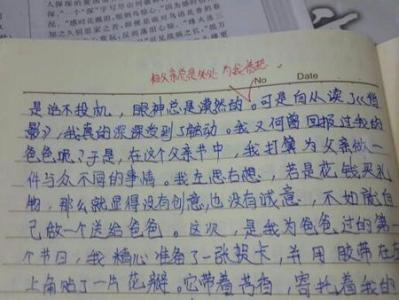 父亲总是处处 为我着想
No Date
是话不投机,眼神总是漠然的。可是自从读了《背
影》,我真的深深受到了触动。我又何曾回报过我的
爸爸呢?于是,在这个父亲节中,我打算为父亲做一
件与众不同的事情。我左思右想,若是花钱买礼
物,那么就显得没有创意,也没有诚意,不如就自
己做一个送给爸爸。这次,是我为爸爸过的第一
个节日,我精心准备了一张贺卡,并用胶带在左
上角贴了一片花瓣。它带着芳香,寄托着我的